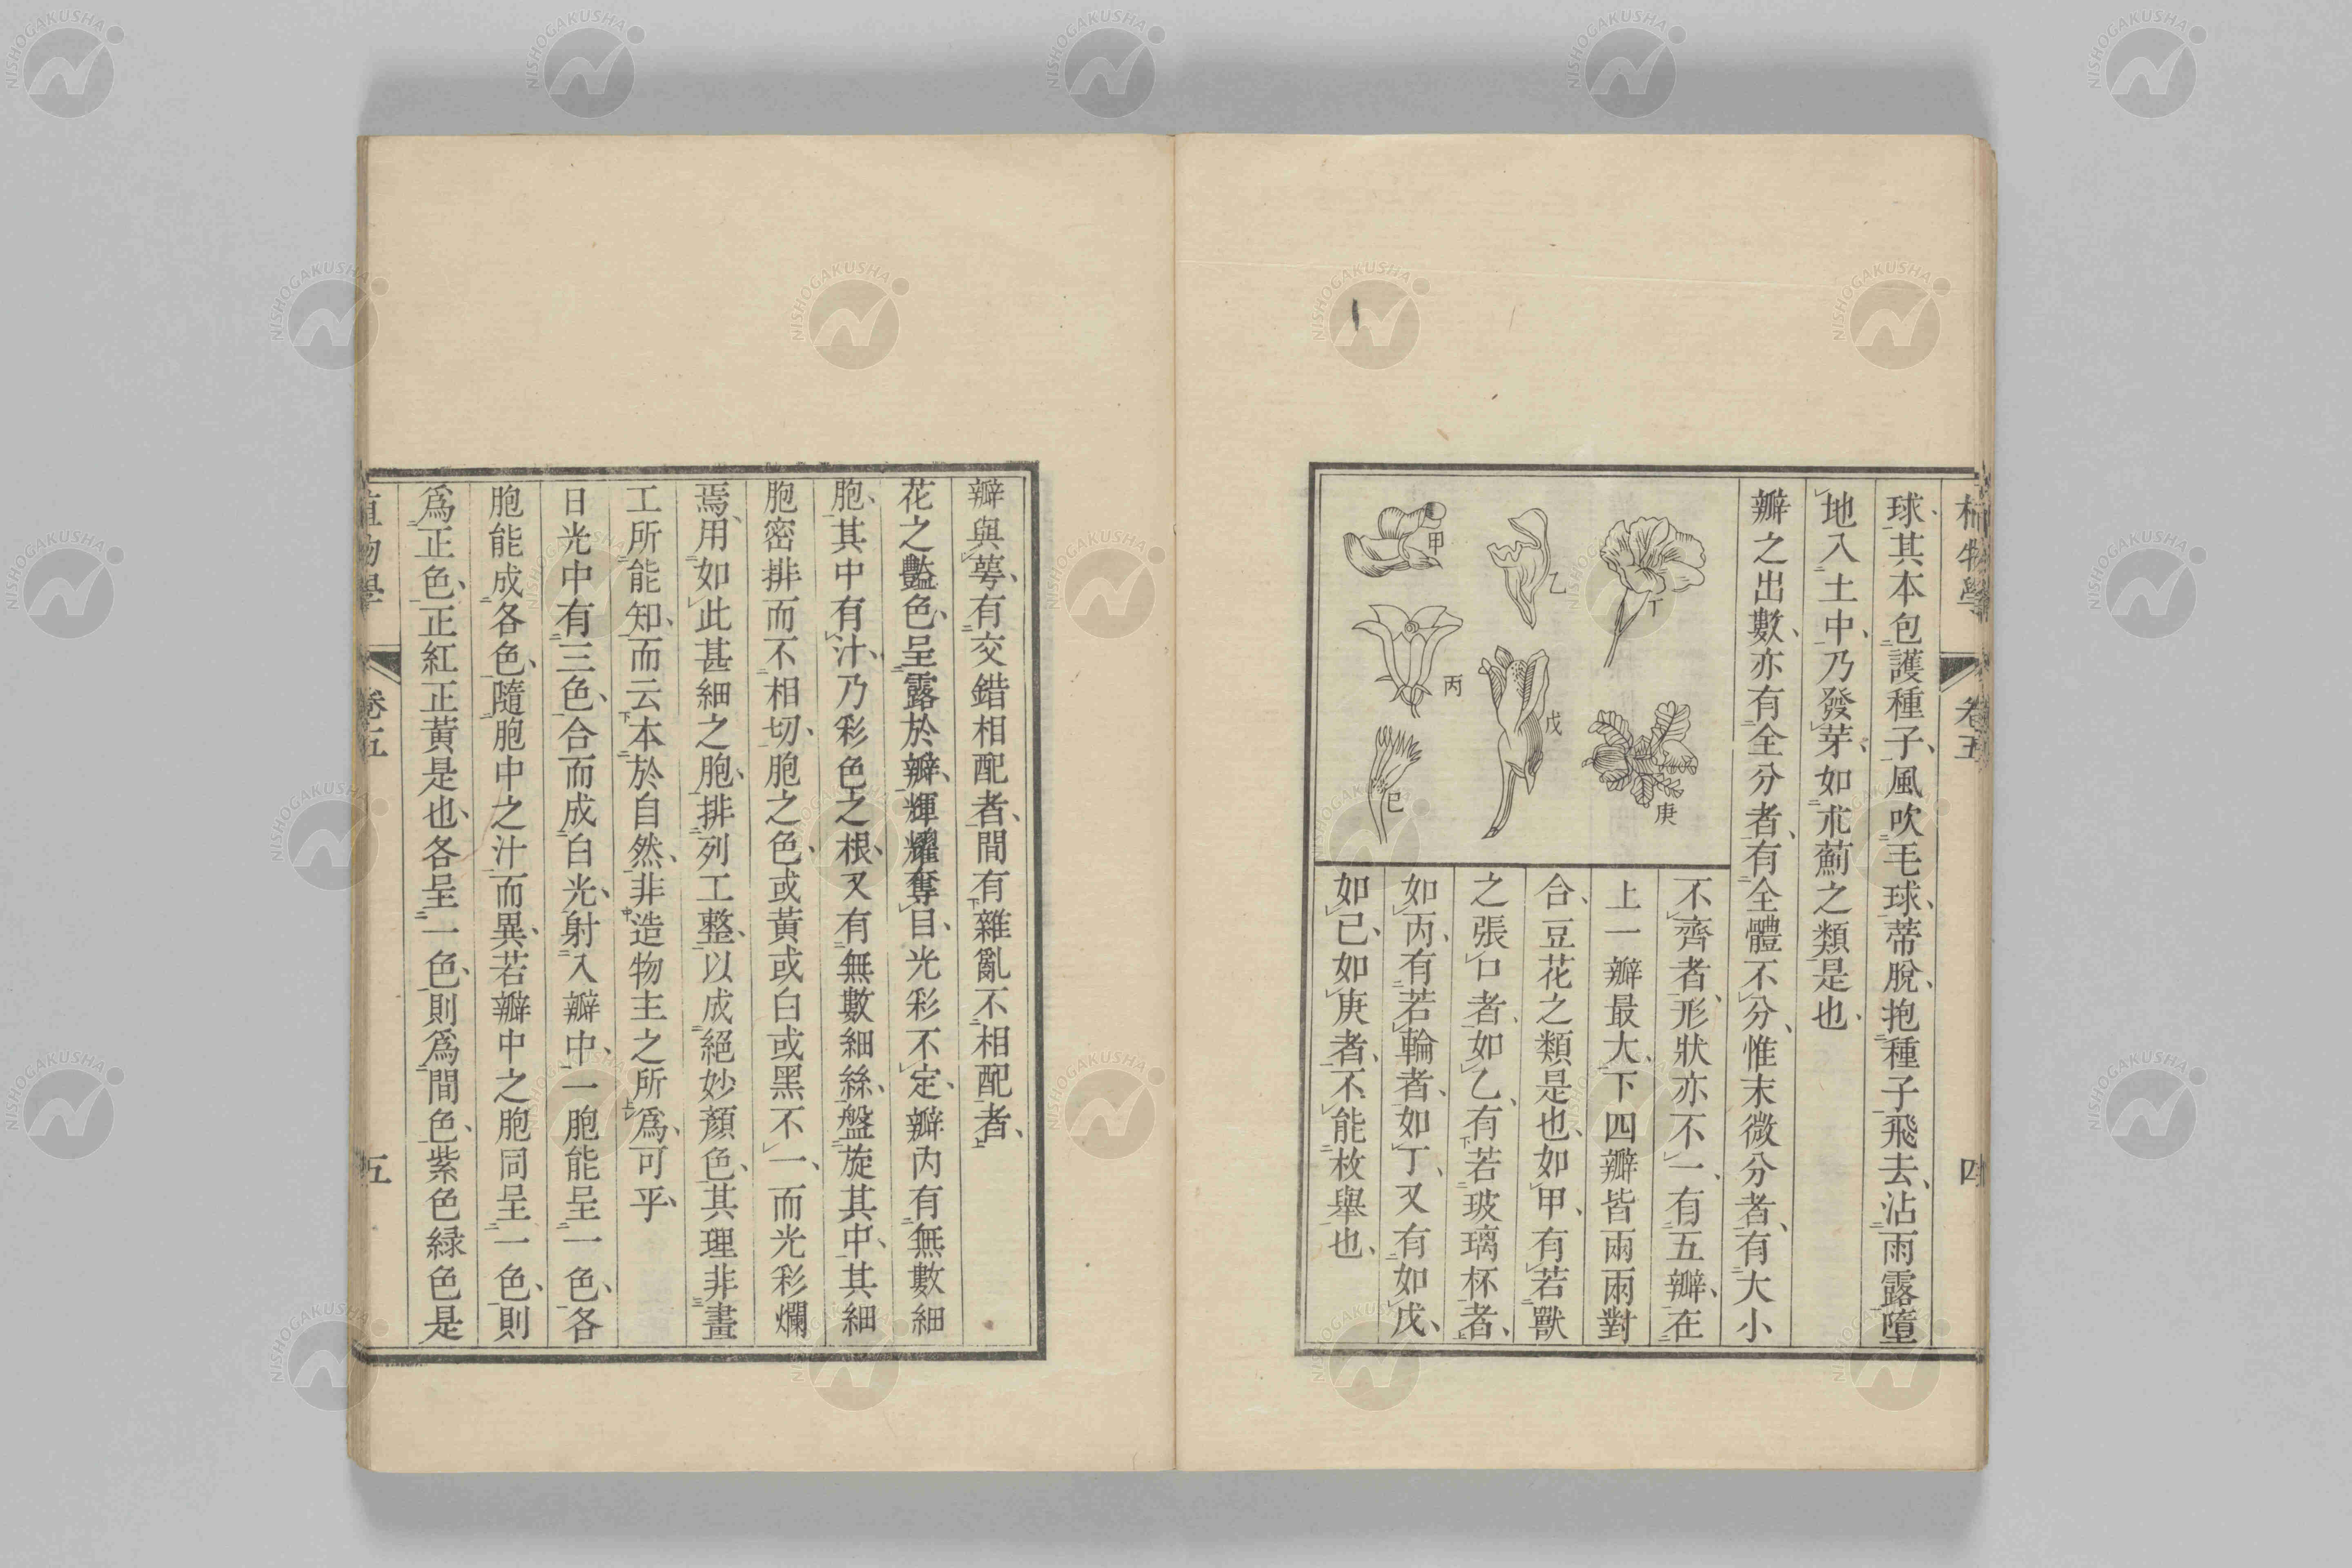 植物學 卷五 四
球、其本包護種子、風吹毛球、蒂脫、抱種子飛去、沾雨露墮
地入土中、乃發芽、如朮薊之類是也、
瓣之出數、亦有全分者、有全體不分、惟末微分者、有大小
甲
乙
丙
丁
戊
己
庚
不齊者、形狀亦不一、有五瓣、在
上一瓣最大、下四瓣皆兩兩對
合、豆花之類是也、如甲、有若獸
之張口者、如乙、有若玻璃杯者、
如丙、有若輪者、如丁、又有如戊、
如己、如庚者、不能枚舉也、
瓣與萼、有交錯相配者、間有雜亂不相配者、
花之豔色、呈露於瓣、輝耀奪目、光彩不定、瓣內有無數細
胞、其中有汁、乃彩色之根、又有無數細絲、盤旋其中、其細
胞密排而不相切、胞之色、或黃或白或黑不一、而光彩爛
焉、用如此甚細之胞、排列工整、以成絕妙顏色、其理非畫
工所能知、而云本於自然、非造物主之所爲、可乎、
日光中有三色、合而成白光、射入瓣中、一胞能呈一色、各
胞能成各色、隨胞中之汁而異、若瓣中之胞同呈一色、則
爲正色、正紅正黃是也、各呈一色、則爲間色、紫色綠色是
植物學 卷五 五
NISHOGAKUSHA